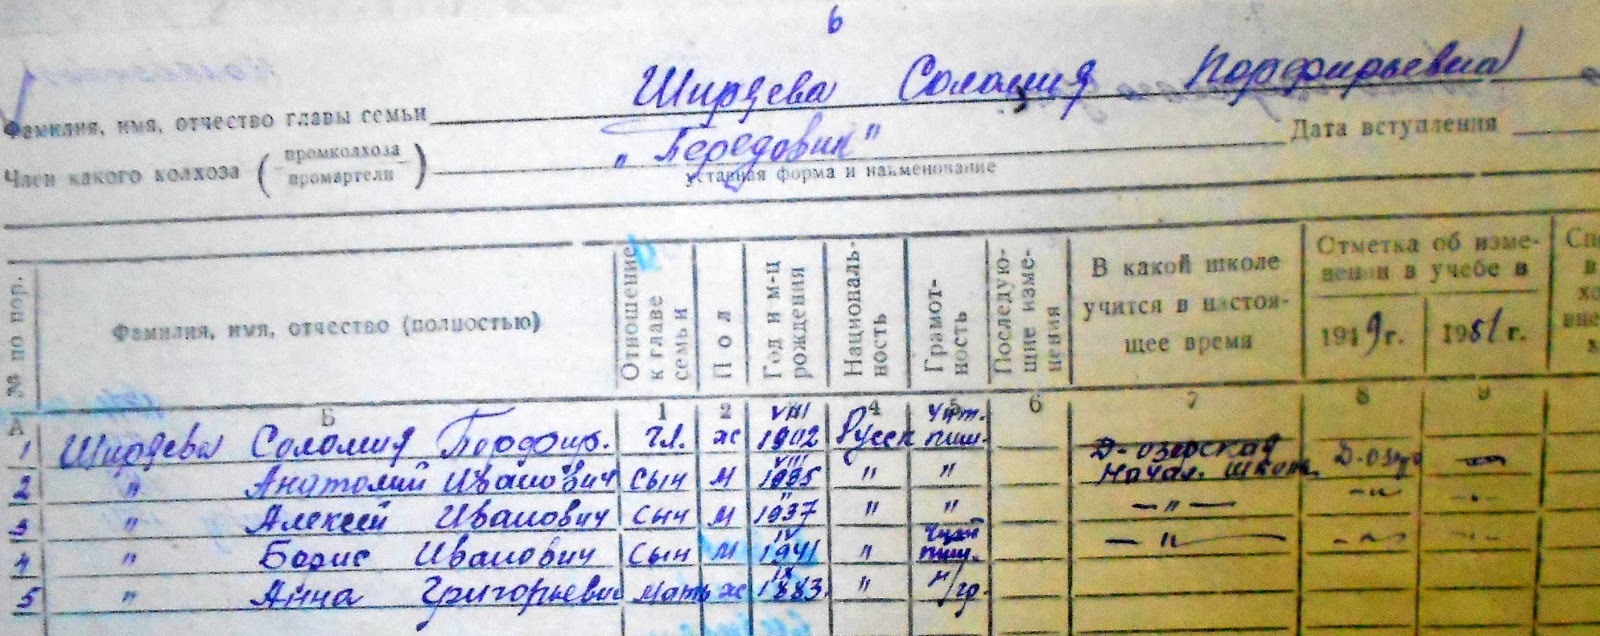 6
Фамилия, имя, отчество главы семьи Ширяева Соломия Порфирьевна
Член какого колхоза (промколхоза промартели) „Передовик"
Дата вступления
уставная форма и наименование
№ по пор. Фамилия, имя, отчество (полностью) Отношение к главе семьи Пол Год и м-ц рождения Националь-ность Грамот-ность Последую-щие изме-нения В какой школе учится в настоя-щее время Отметка об изме-нении в учебе в 1949 г. 1951 г.
А Б 1 2 3 4 5 6 7 8 9
1 Ширяева Соломия Порфир. гл. ж VIII 1902 Русск чит. пиш.
2 " Анатолий Иванович сын м VIII 1935 " " Д-озерская начал. школ. Д-озер
3 " Алексей Иванович сын м 1937 " " — " —
4 " Борис Иванович сын м IV 1941 " пиш. — " —
5 " Анна Григорьевн мать ж IX 1883 " н/гр.